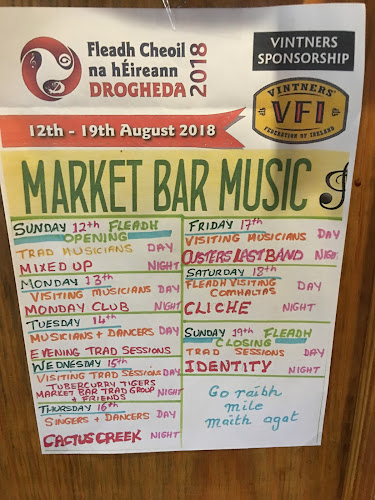 Fleadh Cheoil
na hÉireann
DROGHEDA 2018
VINTNERS
SPONSORSHIP
VINTNERS'
VFI
FEDERATION OF IRELAND
12th - 19th August 2018
MARKET BAR MUSIC
SUNDAY 12th FLEADH
OPENING
TRAD MUSICIANS DAY
MIXED UP NIGHT
MONDAY 13th
VISITING MUSICIANS DAY
MONDAY CLUB NIGHT
TUESDAY 14th
MUSICIANS + DANCERS DAY
EVENING TRAD SESSIONS
WEDNESDAY 15th
VISITING TRAD SESSIONS DAY
TUBERCURRY TIGERS
MARKET BAR TRAD GROUP
+ FRIENDS NIGHT
THURSDAY 16th
SINGERS + DANCERS DAY
CACTUS CREEK NIGHT
FRIDAY 17th
VISITING MUSICIANS DAY
OUSTERS LAST BAND NIGHT
SATURDAY 18th
FLEADH VISITING
COMHALTAS DAY
CLICHE NIGHT
SUNDAY 19th FLEADH
CLOSING
TRAD SESSIONS DAY
IDENTITY NIGHT
Go raibh
mile
máith agat